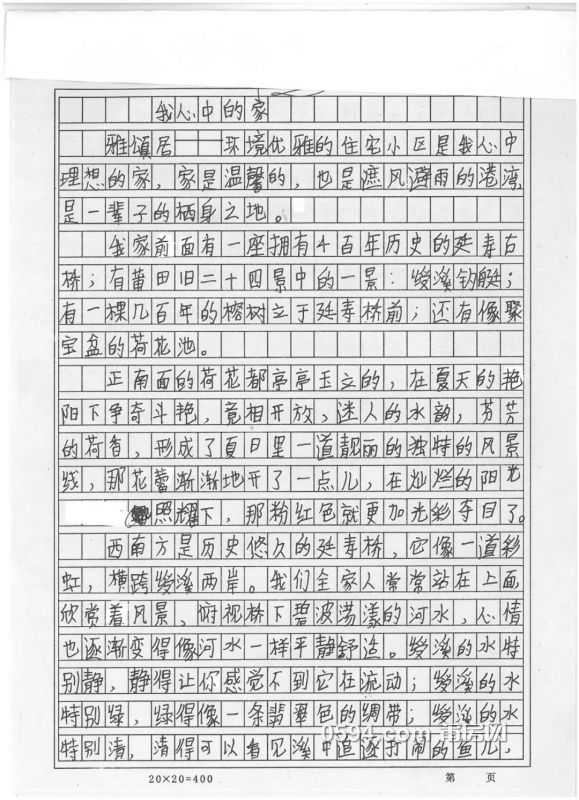 我心中的家
雅頌居——环境优雅的住宅小区是我心中
理想的家，家是温馨的，也是遮风避雨的港湾，
是一辈子的栖身之地。
我家前面有一座拥有4百年历史的延寿古
桥；有莆田旧二十四景中的一景：绶溪钓艇；
有一棵几百年的榕树立于延寿桥前；还有像聚
宝盆的荷花池。
正南面的荷花都亭亭玉立的，在夏天的艳
阳下争奇斗艳，竟相开放，迷人的水韵，芬芳
的荷香，形成了夏日里一道靓丽的独特的风景
线，那花蕾渐渐地开了一点儿，在灿烂的阳光
照耀下，那粉红色就更加光彩夺目了。
西南方是历史悠久的延寿桥，它像一道彩
虹，横跨绶溪两岸。我们全家人常常站在上面
欣赏着风景，俯视桥下碧波荡漾的河水，心情
也逐渐变得像河水一样平静舒适。绶溪的水特
别静，静得让你感觉不到它在流动；绶溪的水
特别绿，绿得像一条翡翠色的绸带；绶溪的水
特别清，清得可以看见溪中追逐打闹的鱼儿，
0594.com 莆房网
20×20=400 第 页